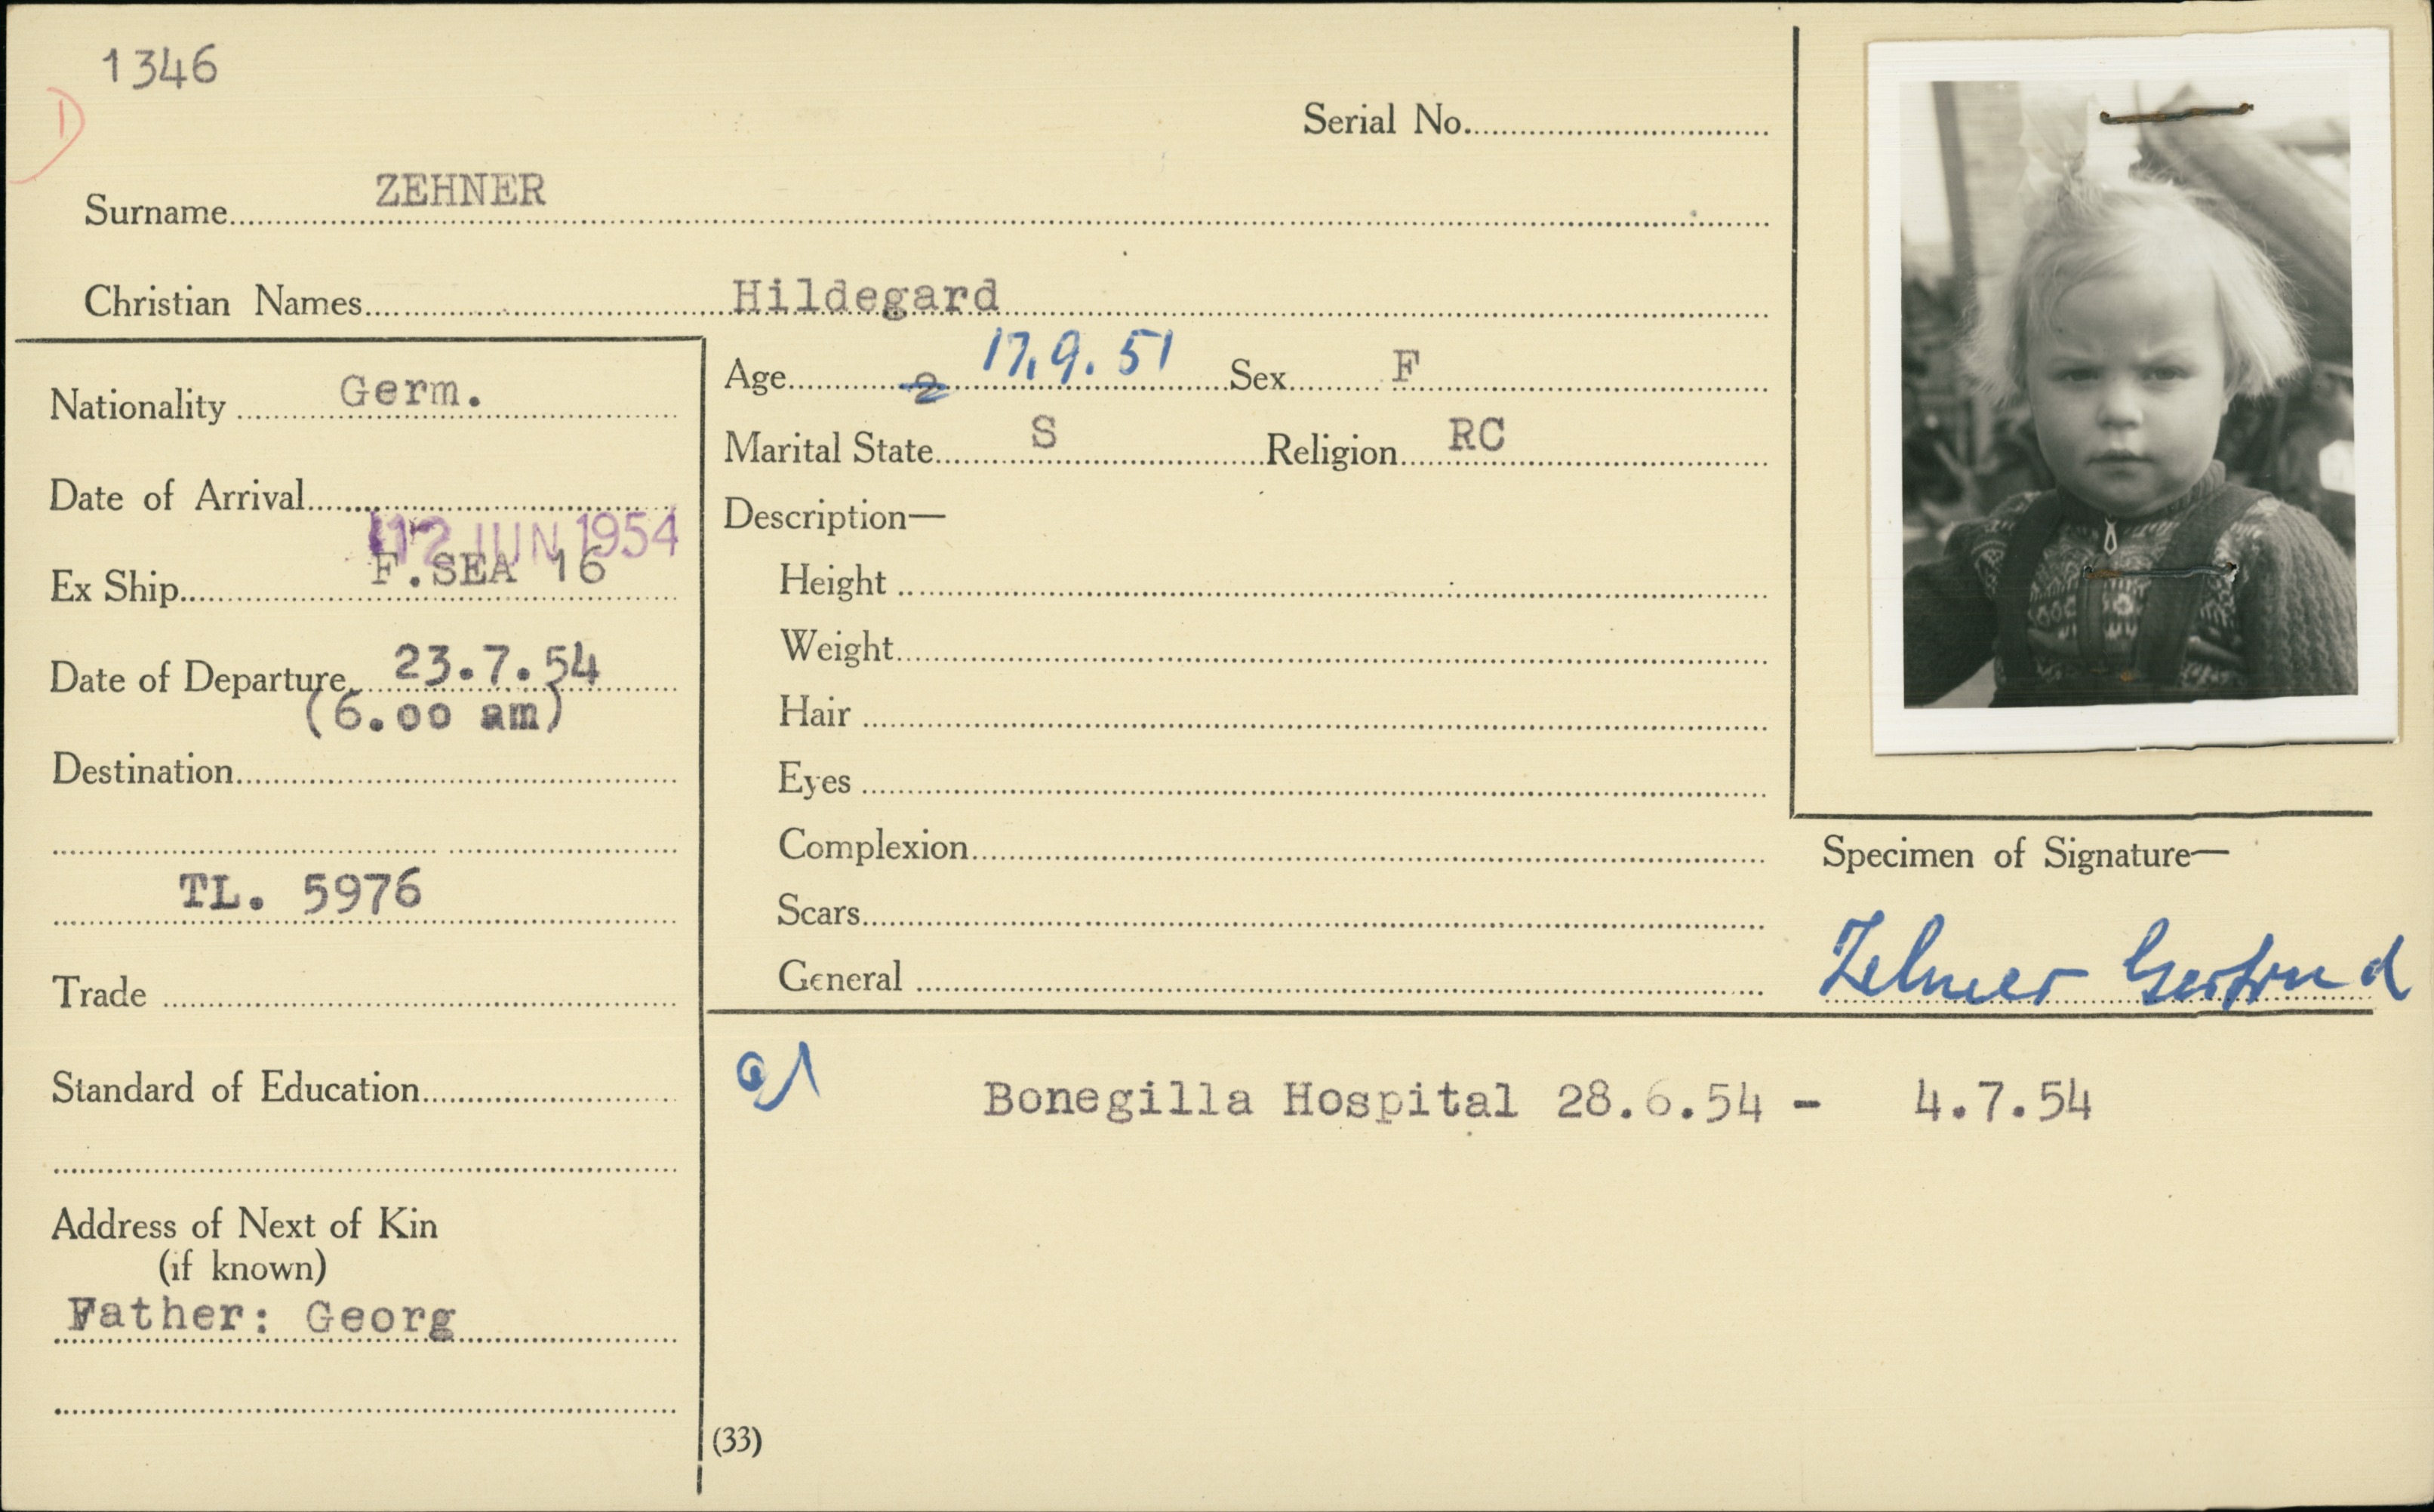 1346
1)
Serial No.
Surname ZEHNER
Christian Names Hildegard
Nationality Germ.
Age 2 17.9.51 Sex F
Marital State S Religion RC
Date of Arrival 12 JUN 1954
Description—
Ex Ship F.SEA 16
Height
Weight
Date of Departure 23.7.54
(6.00 am)
Hair
Destination
Eyes
Complexion
TL. 5976
Scars
Trade
General
Specimen of Signature—
Zehner Gertrud
Standard of Education
Bonegilla Hospital 28.6.54 - 4.7.54
Address of Next of Kin
(if known)
Father: Georg
(33)